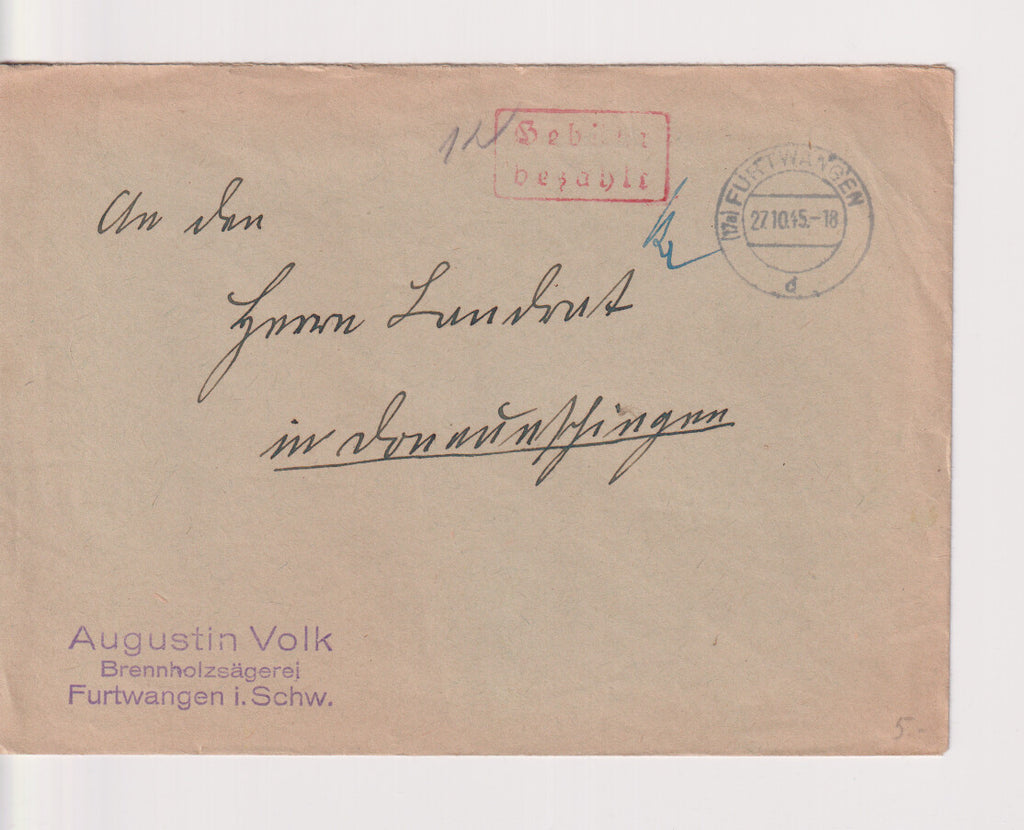 12
Gebühr
bezahlt
(17a) FURTWANGEN
27.10.45.-18
d
An den
Herrn Landrat
in Donaueschingen
Augustin Volk
Brennholzsägerei
Furtwangen i. Schw.
5.-